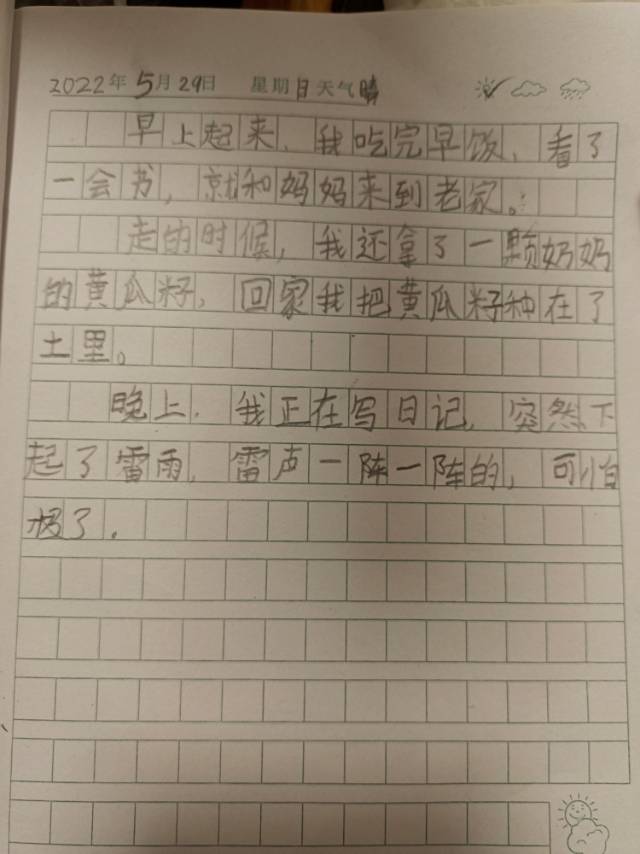 2022年5月29日 星期日天气晴
早上起来，我吃完早饭，看了
一会书，就和妈妈来到老家。
走的时候，我还拿了一颗奶奶
的黄瓜籽，回家我把黄瓜籽种在了
土里。
晚上，我正在写日记，突然下
起了雷雨，雷声一阵一阵的，可怕
极了。